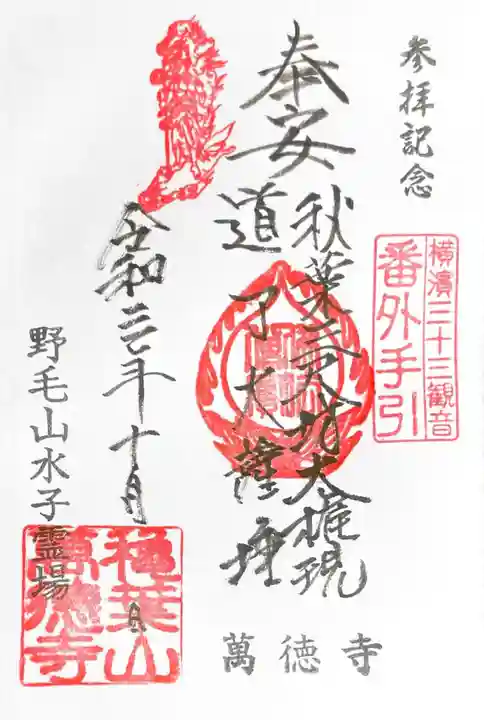 参拝記念
横濱三十三観音
番外手引
奉安
秋葉三尺坊大権現
道了大薩埵
令和三年十月 日
野毛山水子霊場
秋葉山
萬徳寺
萬徳寺